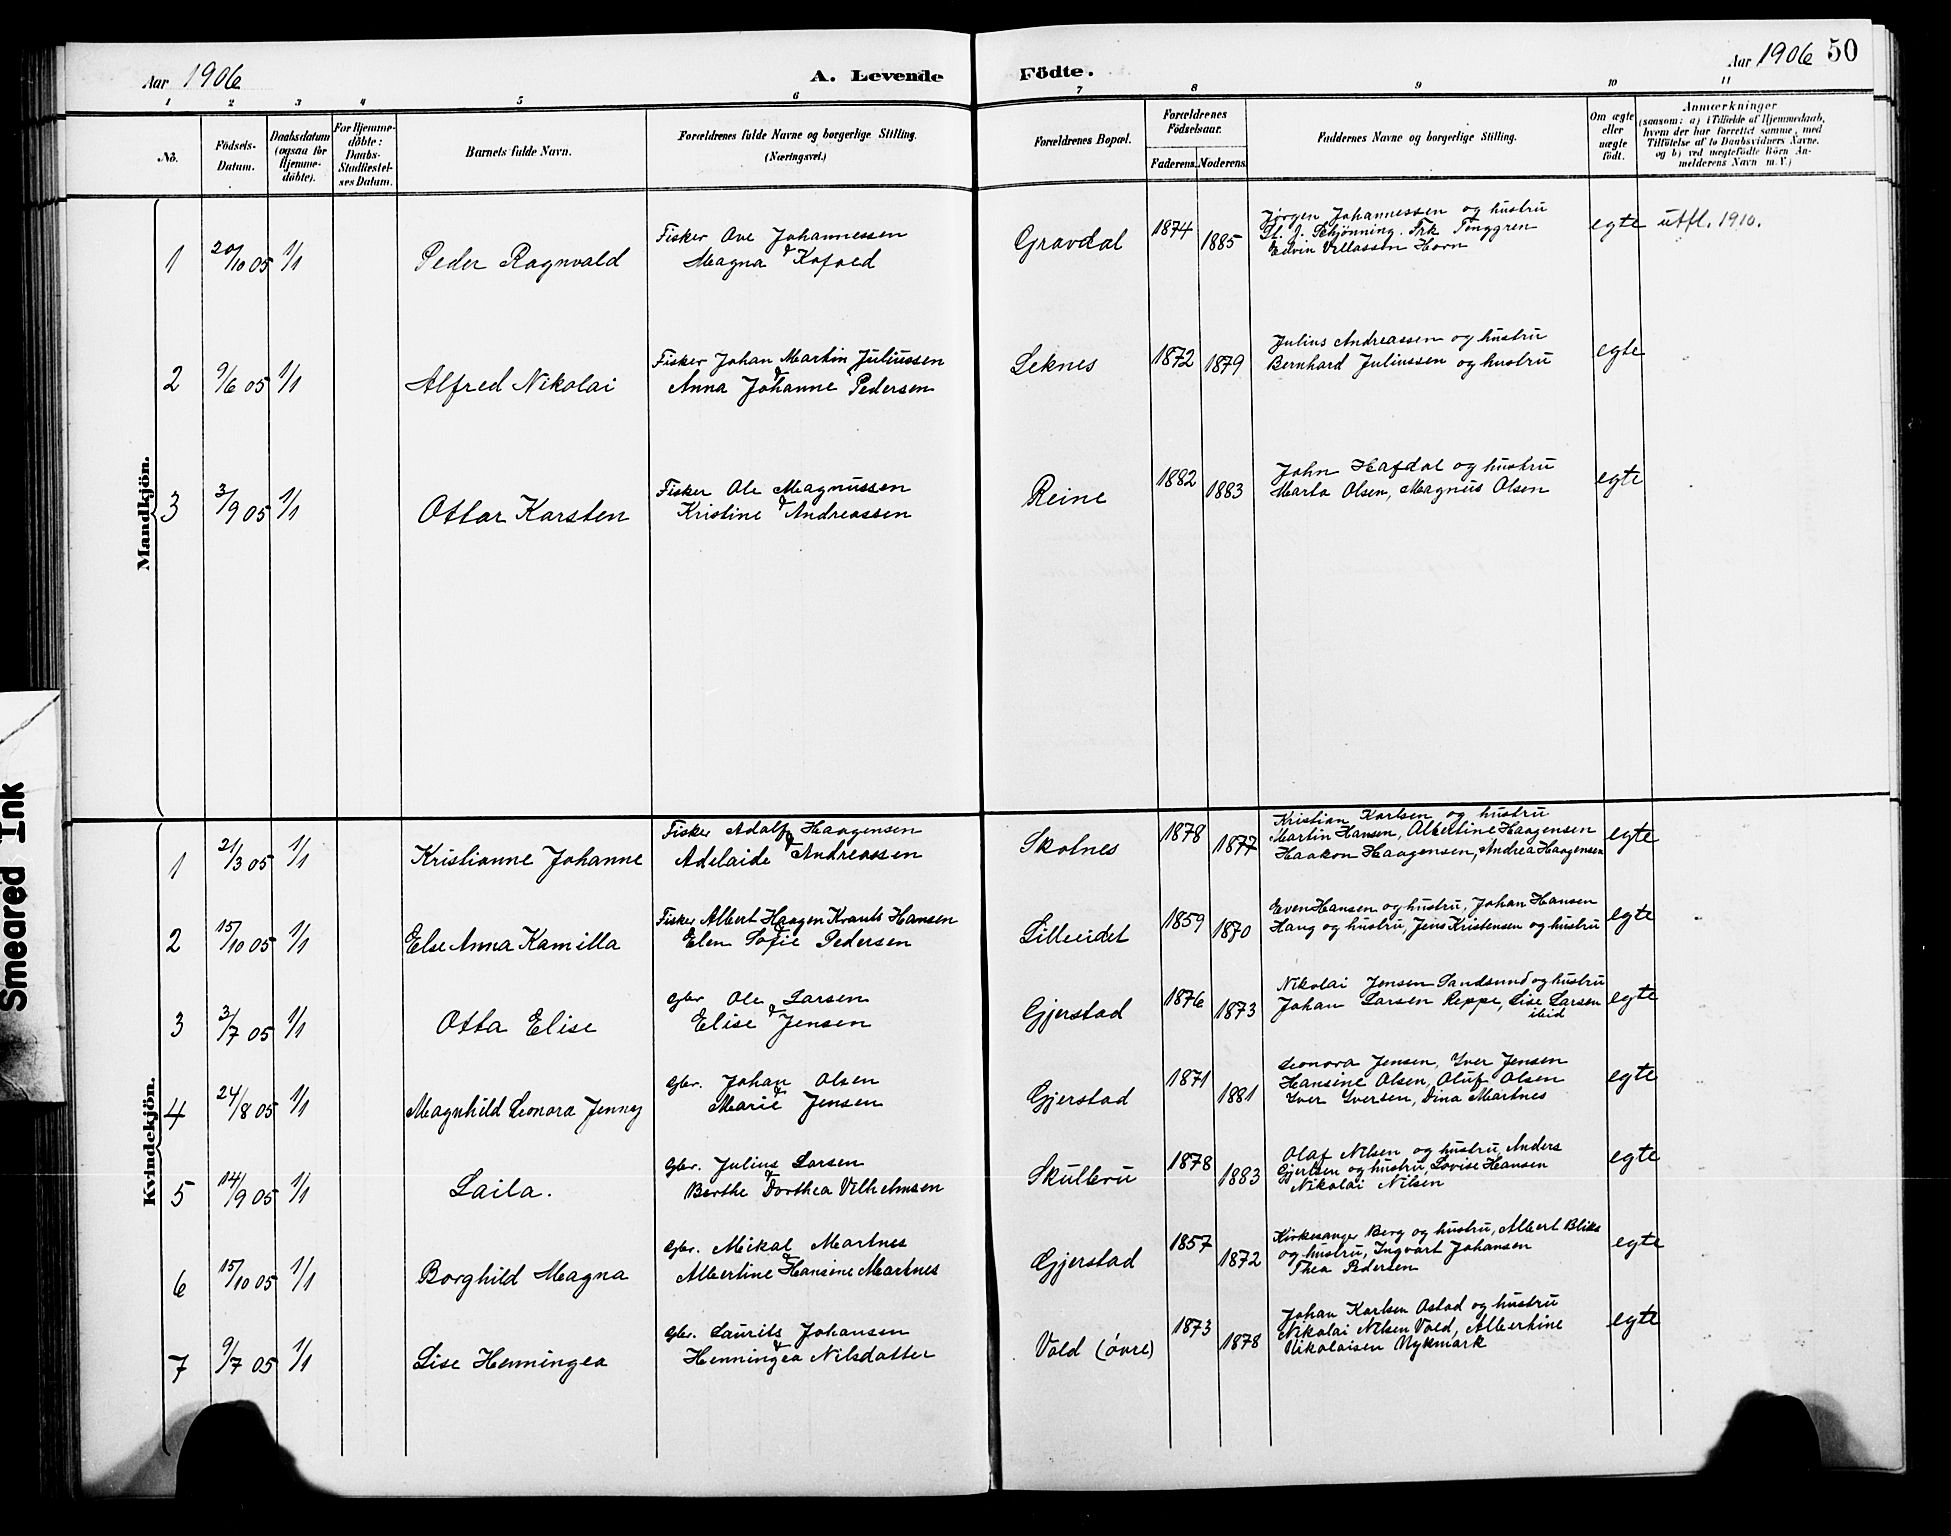 Aar 1906
A. Levende Födte.
Aar 1906 50
1 2 3 4 5 6 7 8 9 10 11
No.
Födsels-
Datum.
Daabsdatum
(ogsaa for
Hjemme-
döbte).
For Hjemme-
döbte:
Daabs-
Stadfæstel-
ses Datum.
Barnets fulde Navn.
Forældrenes fulde Navne og borgerlige Stilling.
(Næringsvei.)
Forældrenes Bopæl.
Forældrenes
Födselsaar.
Faderens. Moderens.
Faddernes Navne og borgerlige Stilling.
Om ægte
eller
uægte
födt.
Anmærkninger
(saasom: a) i Tilfælde af Hjemmedaab,
hvem der har forrettet samme, med
Tilföielse af to Daabsvidners Navne,
og b) ved uægtefödte Börn An-
melderens Navn m. V.)
Mandkjön.
1 20/10 05 1/1 Peder Ragnvald
Fisker Ove Johannessen
& Magna Kofoed
Gravdal 1874 1885
Jørgen Johannessen og hustru
St. J. Schjønning. Frk Tønggren
Edvin Villassen Horn
egte utfl. 1910.
2 9/6 05 1/1 Alfred Nikolai
Fisker Johan Martin Juliussen
& Anna Johanne Pedersen
Leknes 1872 1879
Julius Andreassen og hustru
Bernhard Juliussen og hustru
egte
3 3/9 05 1/1 Ottar Karsten
Fisker Ole Magnussen
Kristine & Andreassen
Reine 1882 1883
John Hafdal og hustru
Marta Olsen, Magnus Olsen
egte
Kvindekjön.
1 21/3 05 1/1 Kristianne Johanne
Fisker Adolf Haagensen
Adelaide & Andreassen
Skolnes 1878 1877
Kristian Karlsen og hustru
Martin Hansen, Albertine Haagensen
Haakon Haagensen, Andrea Haagensen
egte
2 15/10 05 1/1 Else Anna Kamilla
Fisker Albert Haagen Krants Hansen
Elen Sofie & Pedersen
Lilleeidet 1859 1870
Even Hansen og hustru, Johan Hansen
Haug og hustru, Jens Kristensen og hustru
egte
3 3/7 05 1/1 Otta Elise
Gbr Ole Larsen
Elise & Jensen
Gjerstad 1876 1873
Nikolai Jensen Sandsund og hustru
Johan Larsen Reppe, Lise Larsen
ibid
egte
4 24/8 05 1/1 Magnhild Leonora Jenny
Gbr. Johan Olsen
Marie & Jensen
Gjerstad 1871 1881
Leonora Jensen, Iver Jensen
Hansine Olsen, Oluf Olsen
Iver Iversen, Dina Martnes
egte
5 14/9 05 1/1 Laila.
Gbr. Julius Larsen
Berthe & Dorthea Vilhelmsen
Skulbru 1878 1883
Olaf Nilsen og hustru, Anders
Gjertsen og hustru, Lovise Hansen
Nikolai Nilsen
egte
6 15/10 05 1/1 Borghild Magna
Gbr. Mikal Martnes
Albertine & Hansine Martnes
Gjerstad 1857 1872
Kirkesanger Berg og hustru, Albert Bliks
og hustru, Ingvart Johansen
Thea Pedersen
egte
7 9/7 05 1/1 Lise Henningea
Gbr. Laurits Johansen
Henningea & Nilsdatter
Vold (övre) 1873 1878
Johan Karlsen Ostad og hustru
Nikolai Nilsen Vold, Albertine
Nikolaisen Nykmark
egte
Smeared Ink